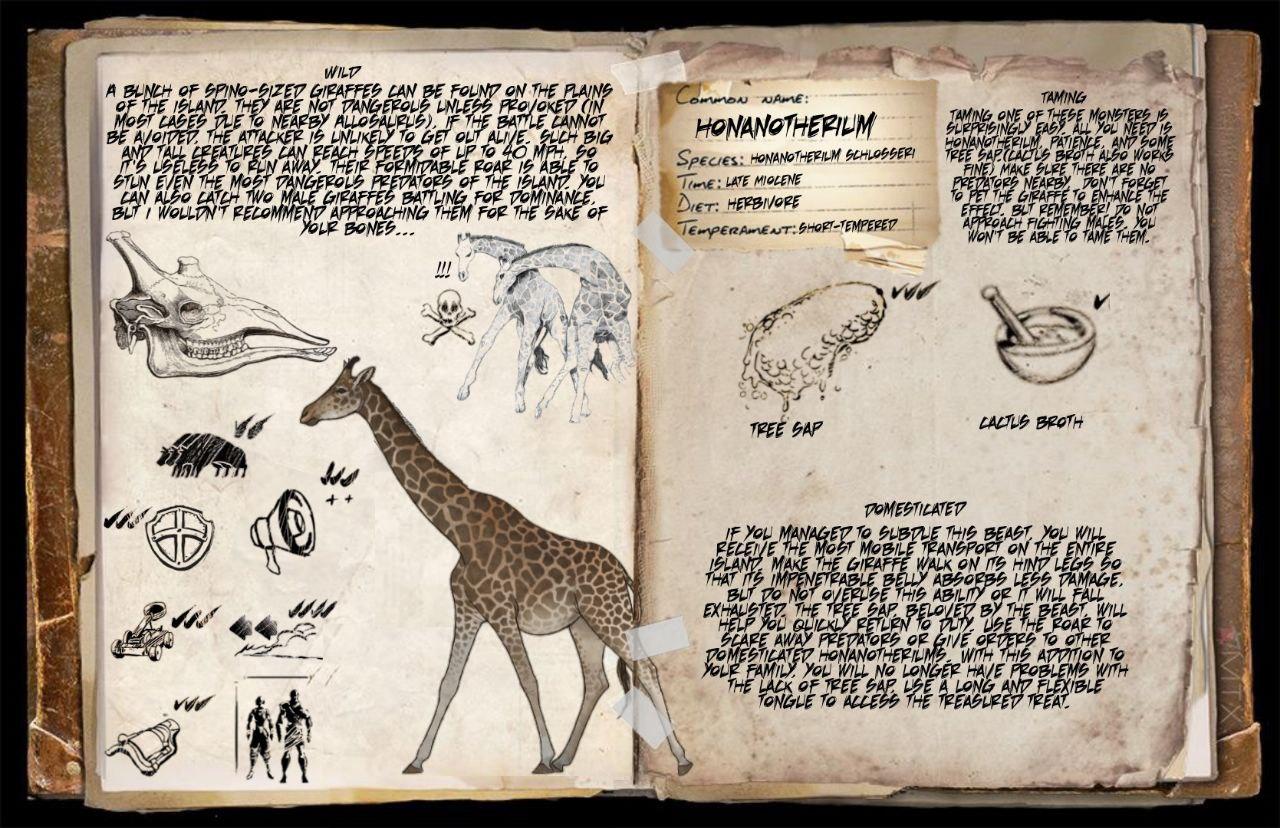 WILD
A BUNCH OF SPINO-SIZED GIRAFFES CAN BE FOUND ON THE PLAINS
OF THE ISLAND. THEY ARE NOT DANGEROUS UNLESS PROVOKED (IN
MOST CASES DUE TO NEARBY ALLOSAURUS). IF THE BATTLE CANNOT
BE AVOIDED, THE ATTACKER IS UNLIKELY TO GET OUT ALIVE. SUCH BIG
AND TALL CREATURES CAN REACH SPEEDS OF UP TO 40 MPH, SO
IT'S USELESS TO RUN AWAY. THEIR FORMIDABLE ROAR IS ABLE TO
STUN EVEN THE MOST DANGEROUS PREDATORS OF THE ISLAND. YOU
CAN ALSO CATCH TWO MALE GIRAFFES BATTLING FOR DOMINANCE,
BUT I WOULDN'T RECOMMEND APPROACHING THEM FOR THE SAKE OF
YOUR BONES...
!!!
++
COMMON NAME:
HONANOTHERIUM
SPECIES: HONANOTHERIUM SCHLOSSERI
TIME: LATE MIOCENE
DIET: HERBIVORE
TEMPERAMENT: SHORT-TEMPERED
TAMING
TAMING ONE OF THESE MONSTERS IS
SURPRISINGLY EASY. ALL YOU NEED IS
HONANOTHERIUM, PATIENCE, AND SOME
TREE SAP (CACTUS BROTH ALSO WORKS
FINE). MAKE SURE THERE ARE NO
PREDATORS NEARBY. DON'T FORGET
TO PET THE GIRAFFE TO ENHANCE THE
EFFECT. BUT REMEMBER! DO NOT
APPROACH FIGHTING MALES. YOU
WON'T BE ABLE TO TAME THEM.
TREE SAP
CACTUS BROTH
DOMESTICATED
IF YOU MANAGED TO SUBDUE THIS BEAST, YOU WILL
RECEIVE THE MOST MOBILE TRANSPORT ON THE ENTIRE
ISLAND. MAKE THE GIRAFFE WALK ON ITS HIND LEGS SO
THAT ITS IMPENETRABLE BELLY ABSORBS LESS DAMAGE,
BUT DO NOT OVERUSE THIS ABILITY OR IT WILL FALL
EXHAUSTED. THE TREE SAP, BELOVED BY THE BEAST, WILL
HELP YOU QUICKLY RETURN TO DUTY. USE THE ROAR TO
SCARE AWAY PREDATORS OR GIVE ORDERS TO OTHER
DOMESTICATED HONANOTHERIUMS. WITH THIS ADDITION TO
YOUR FAMILY, YOU WILL NO LONGER HAVE PROBLEMS WITH
THE LACK OF TREE SAP. USE A LONG AND FLEXIBLE
TONGUE TO ACCESS THE TREASURED TREAT.